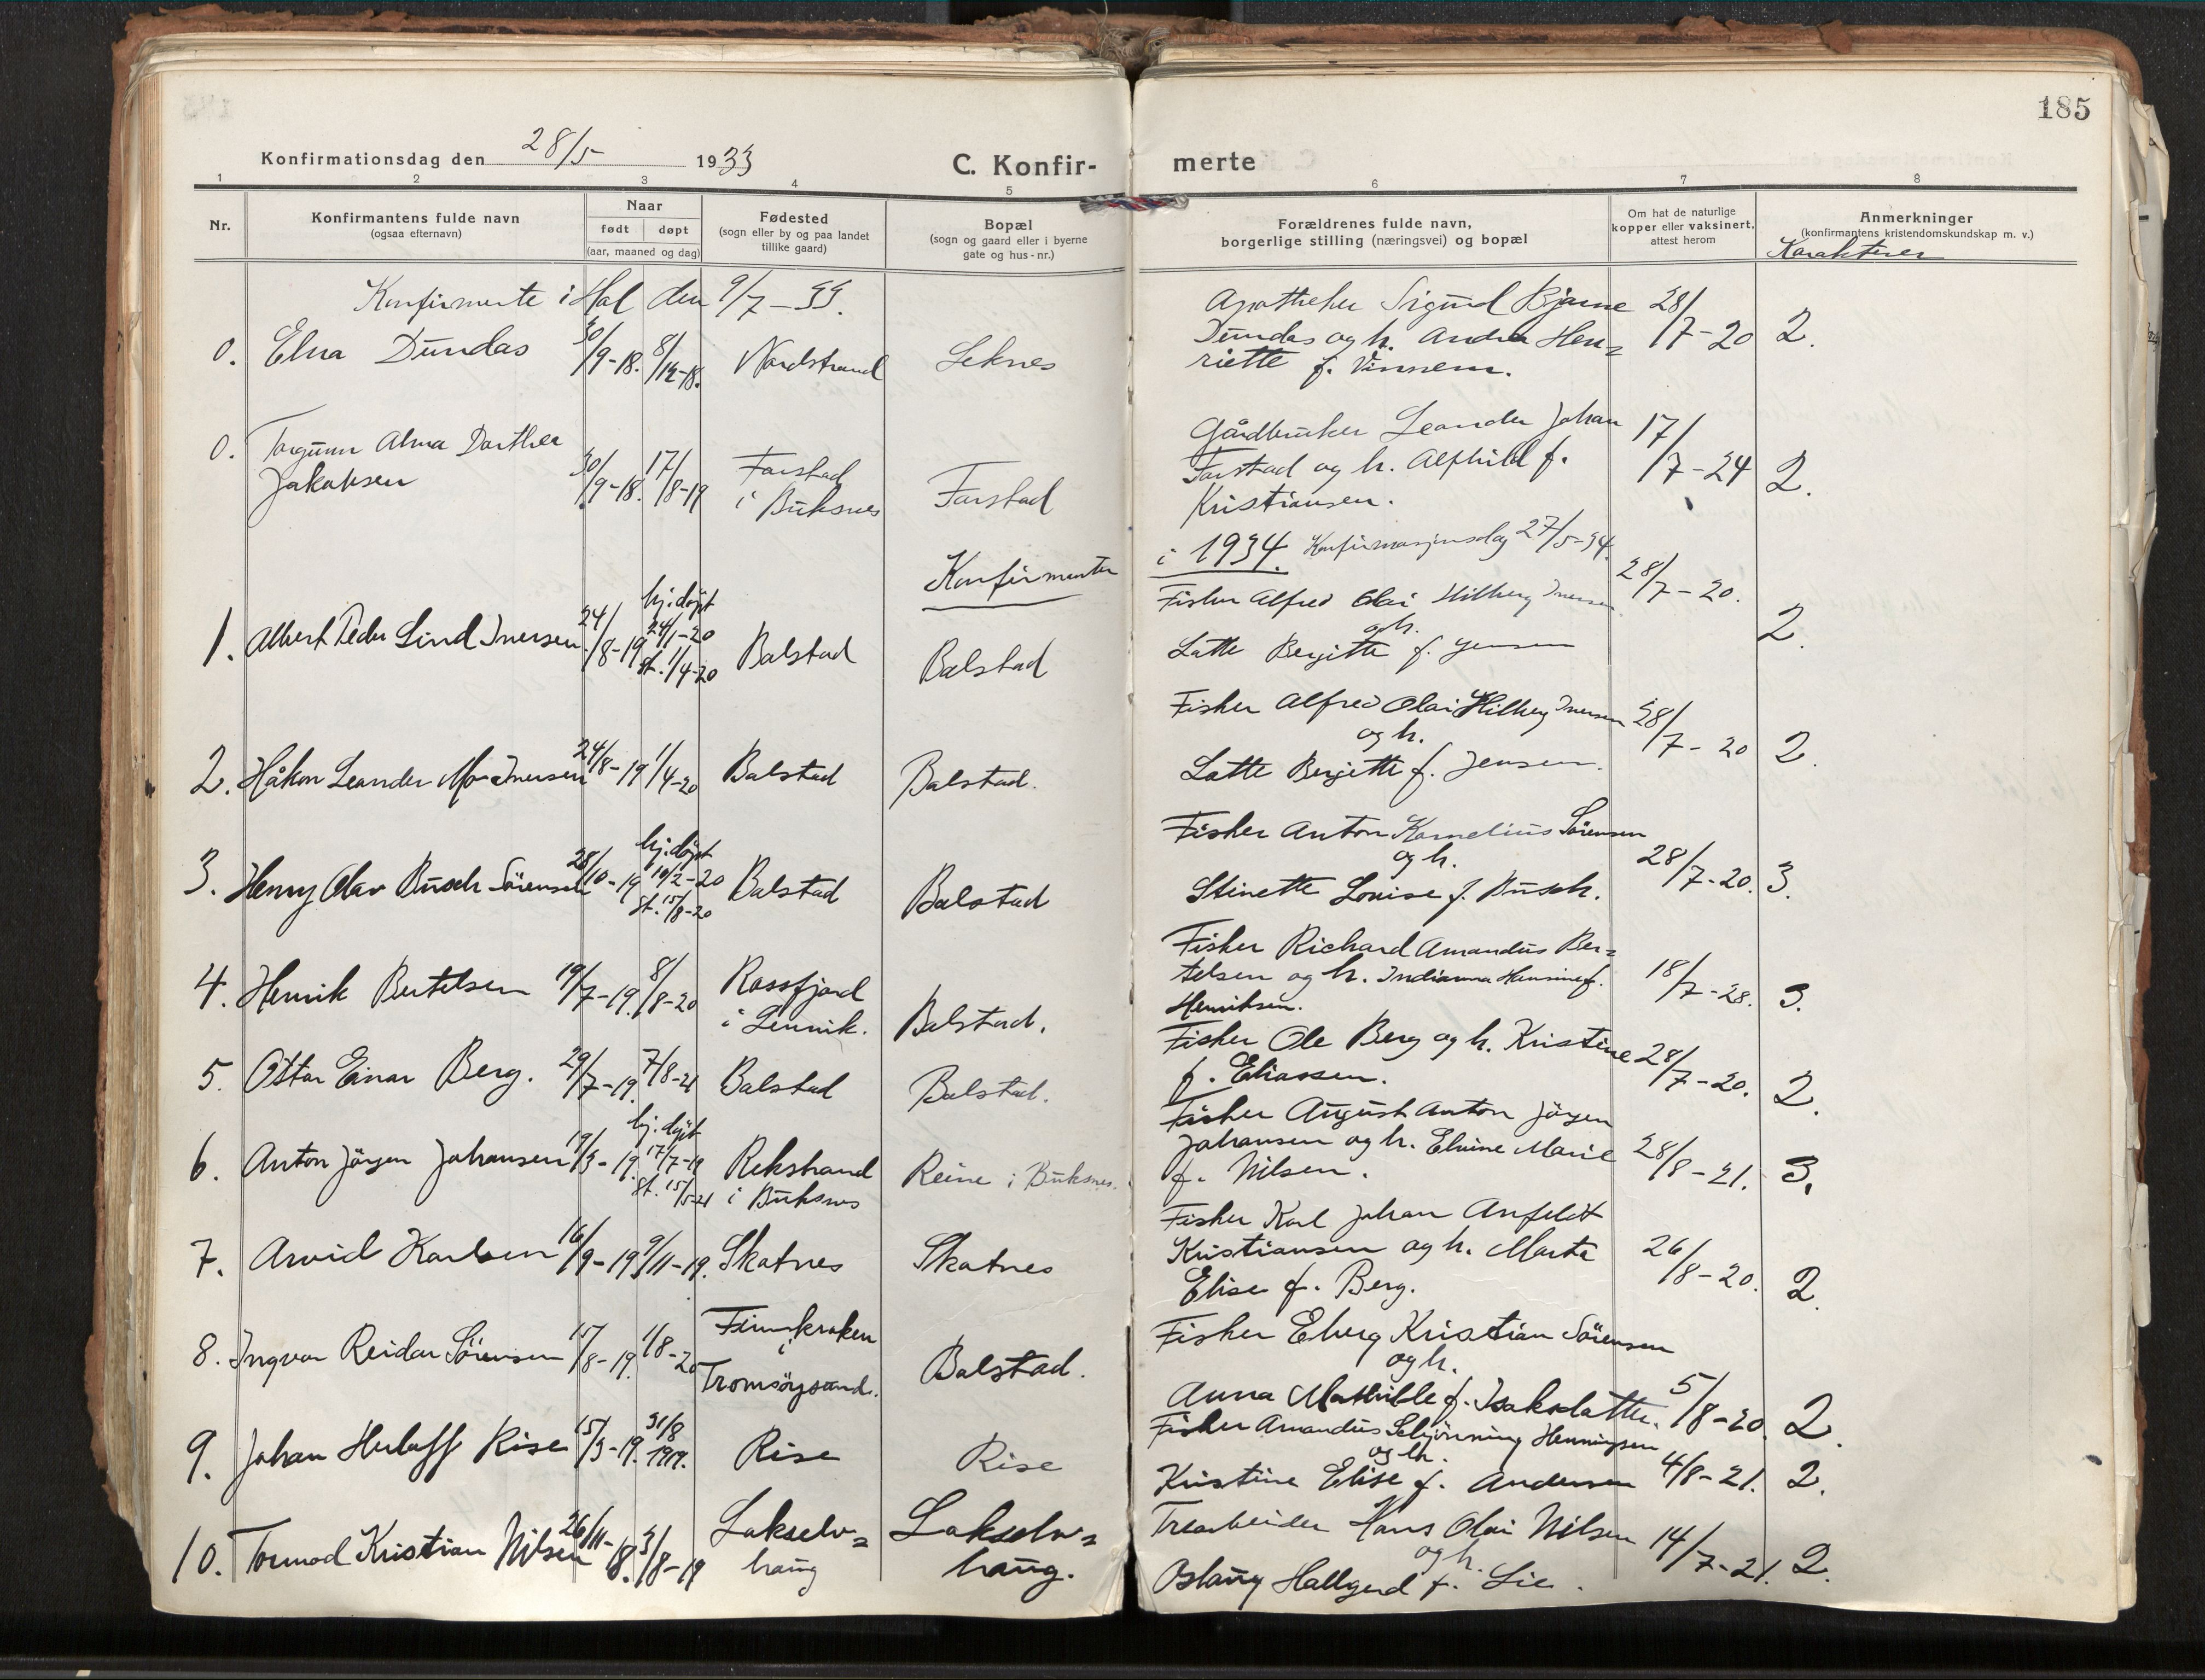 185
Konfirmationsdag den 28/5 1933
C. Konfir- merte
1 2 3 4 5 6 7 8
Nr.
Konfirmantens fulde navn
(ogsaa efternavn)
Naar
født døpt
(aar, maaned og dag)
Fødested
(sogn eller by og paa landet
tillike gaard)
Bopæl
(sogn og gaard eller i byerne
gate og hus-nr.)
Forældrenes fulde navn,
borgerlige stilling (næringsvei) og bopæl
Om hat de naturlige
kopper eller vaksinert,
attest herom
Anmerkninger
(konfirmantens kristendomskundskap m. v.)
Karakterer
Konfirmerte i Hol den 9/7-33.
0. Elna Dundas 30/9-18. 8/12-18. Nordstrand Leknes
Apotheker Sigurd Bjarne
Dundas og h. Andrea Hen=
riette f. Vinnem.
28/7-20 2.
0. Torgunn Alma Dorthea
Jakobsen 30/9-18. 17/8-19
Farstad
i Buksnes
Farstad
Gårdbruker Leander Johan
Farstad og h. Alfhild f.
Kristiansen.
17/7-24 2.
Konfirmanter i 1934. Konfirmasjonsdag 27/5-34.
1. Albert Peder Lind Iversen 24/8-19
hj. døpt
24/1-20
st. 1/4-20
Balstad Balstad
Fisker Alfred Olai Hilberg Iversen
og h.
Latte Bergitte f. Jensen
28/7-20. 2.
2. Håkon Leander Mo Iversen 24/8-19 1/4-20 Balstad Balstad.
Fisker Alfred Olai Hilberg Iversen
og h.
Latte Bergitte f. Jensen.
28/7-20 2.
3. Henry Olav Busch Sörensen 28/10-19
hj. døpt
10/2-20
st. 15/8-20
Balstad Balstad
Fisker Anton Kornelius Sörensen
og h.
Stinette Lovise f. Busch.
28/7-20. 3.
4. Henrik Bertelsen 19/7-19. 8/8-20
Rossfjord
i Lenvik.
Balstad.
Fisker Richard Amandus Ber=
telsen og h. Indianna Hansine f.
Henriksen.
18/7-28. 3.
5. Ottar Einar Berg. 29/7-19. 7/8-21 Balstad Balstad.
Fisker Ole Berg og h. Kristine
f. Eliassen.
28/7-20. 2.
6. Anton Jörgen Johansen 19/3-19.
hj. døpt
17/7-19
st. 15/5-21
Rekstrand
i Buksnes
Reine i Buksnes.
Fisker August Anton Jörgen
Johansen og h. Elvine Marie
f. Nilsen.
28/8-21. 3.
7. Arvid Karlsen 16/9-19 9/11-19. Skotnes Skotnes
Fisker Karl Johan Anfeldt
Kristiansen og h. Marta
Elise f. Berg.
26/8-20. 2.
8. Ingvar Reidar Sörensen 15/8-19. 1/8-20
Finnkroken
i
Tromsöysund.
Balstad.
Fisker Eberg Kristian Sörensen
og h.
Anna Mathilde f. Isaksdatter.
5/8-20. 2.
9. Johan Herluff Rise 15/3-19. 31/8
1919.
Rise Rise
Fisker Amandus Schjönning Henningsen
og h.
Kristine Elise f. Andersen
4/8-21. 2.
10. Tormod Kristian Nilsen 26/11-18. 3/8-19
Lakselv=
haug
Lakselv=
haug.
Trearbeider Hans Olai Nilsen
og h.
Oslaug Hallgerd f. Lie.
14/7-21. 2.